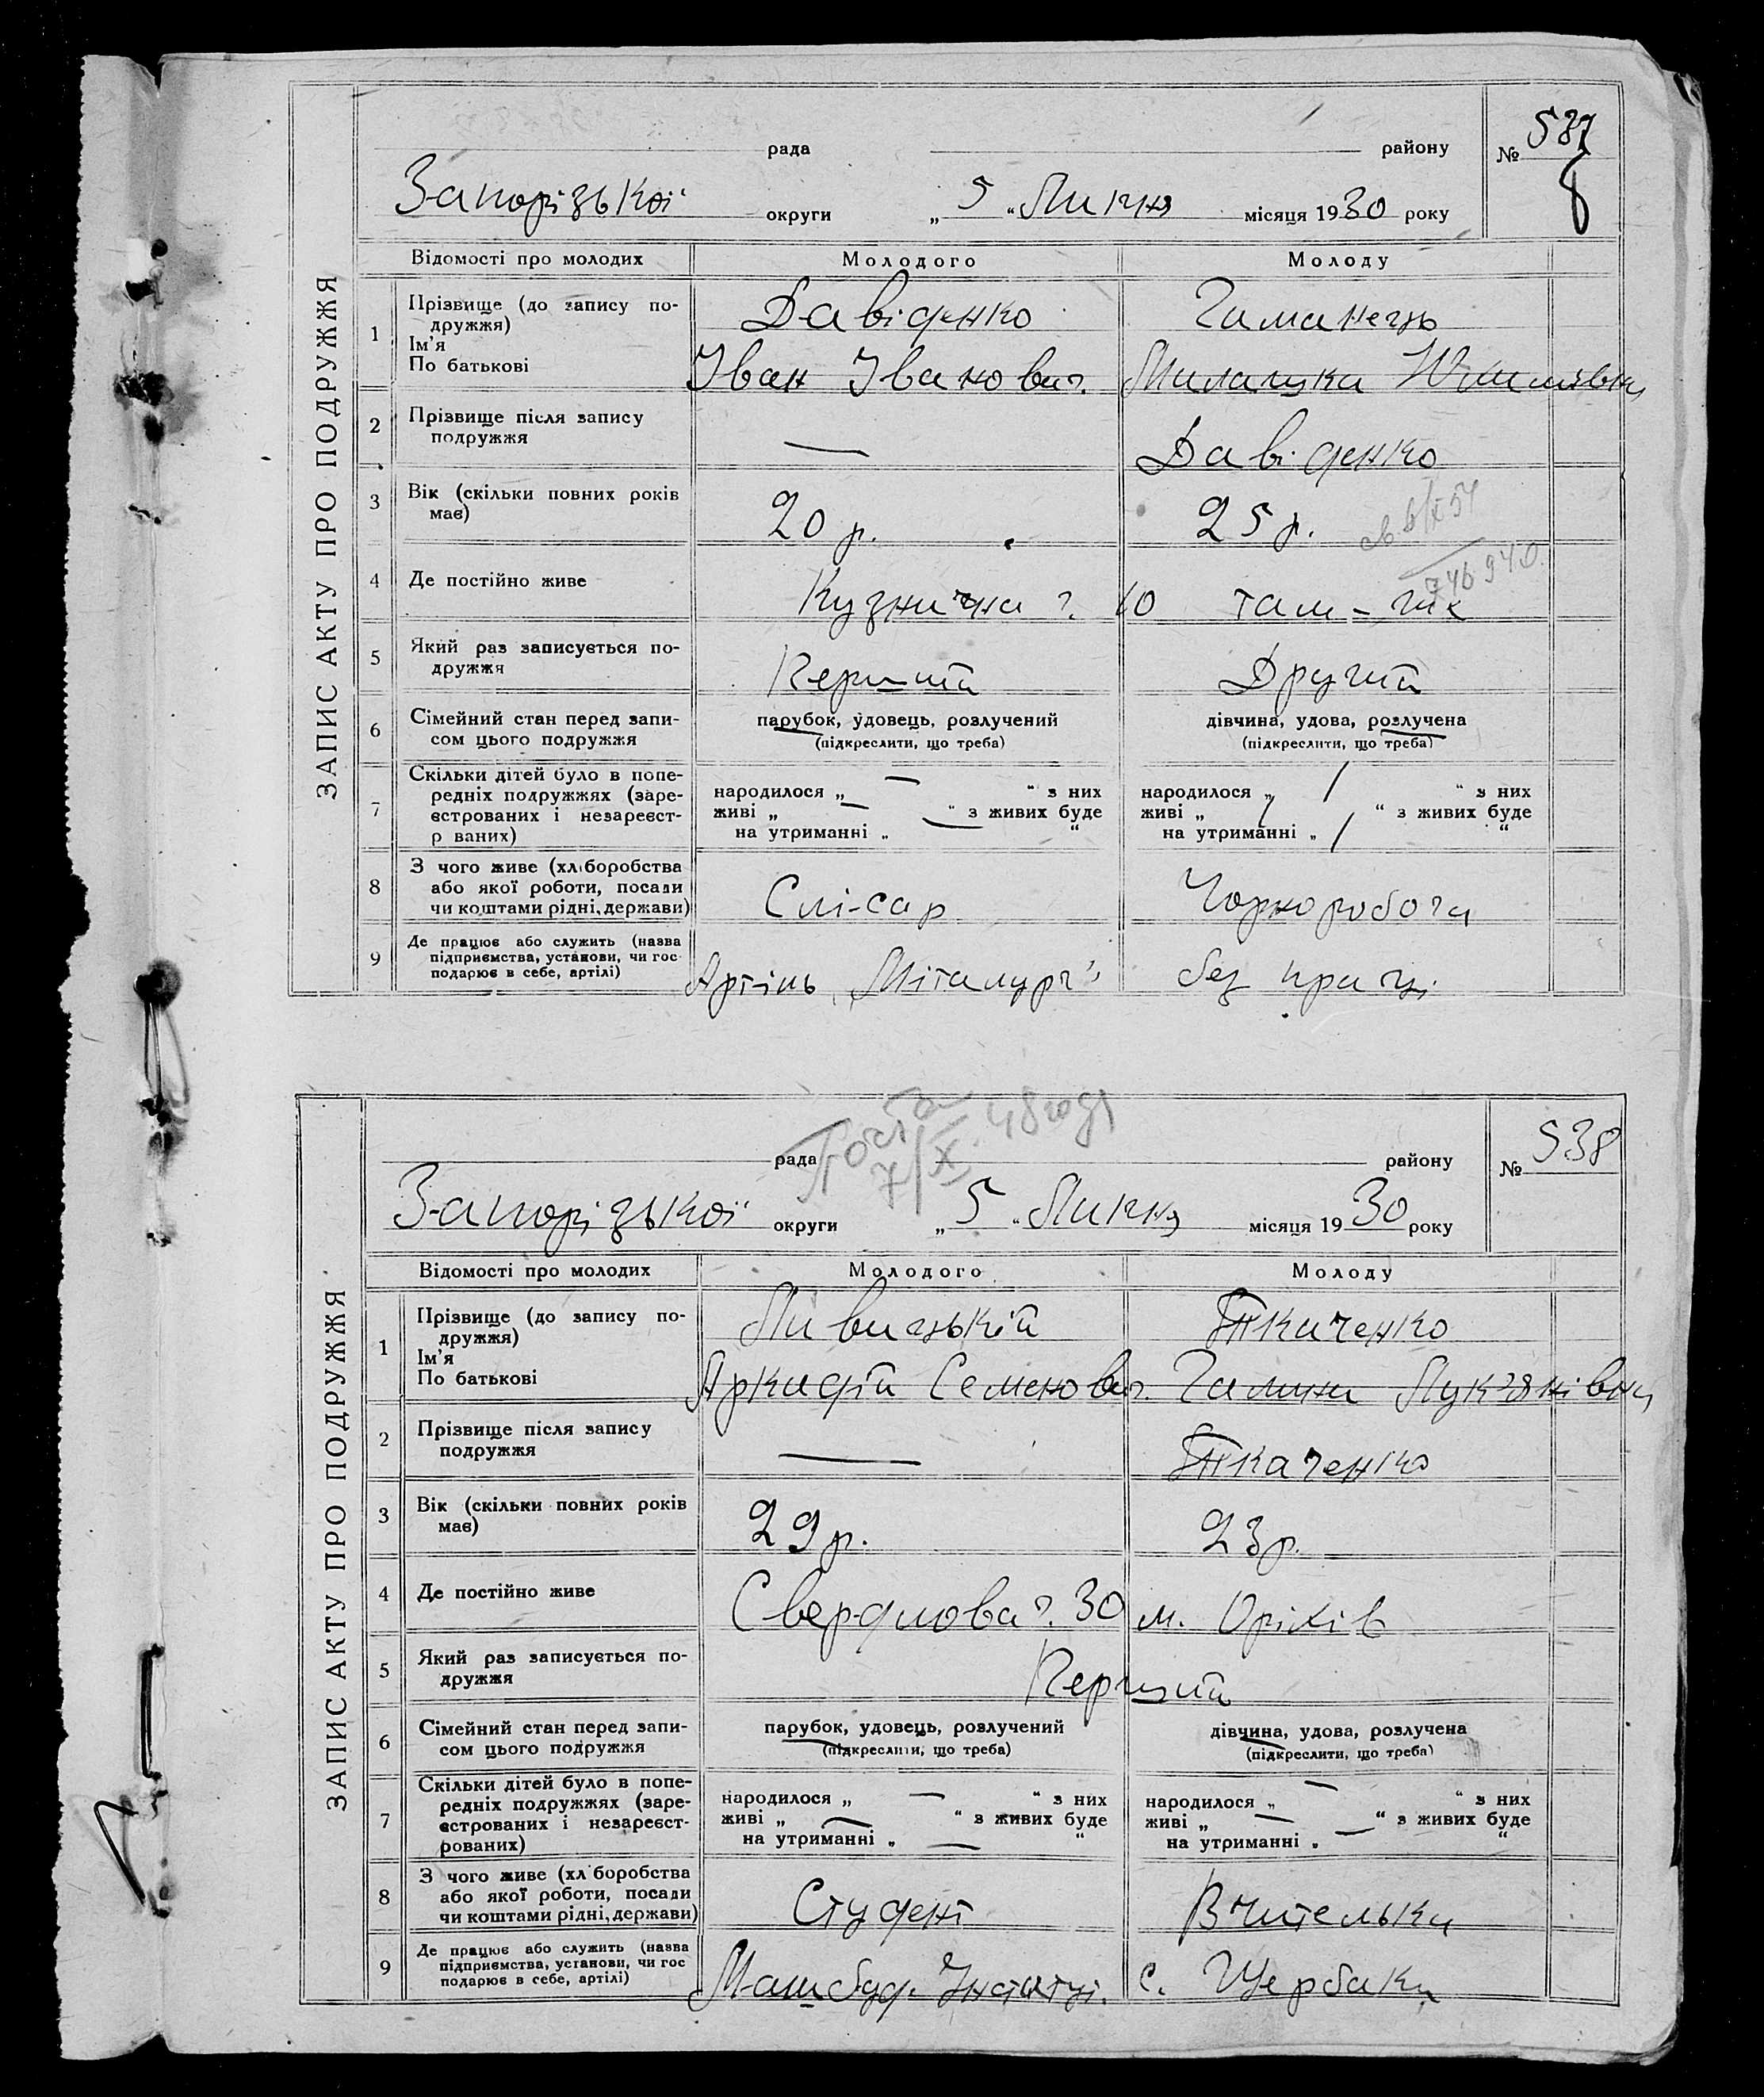 рада району № 537
8
Запорізької округи „ 5 “ Липня місяця 1930 року
ЗАПИС АКТУ ПРО ПОДРУЖЖЯ
Відомості про молодих Молодого Молоду
1 Прізвище (до запису по-
дружжя)
Ім'я
По батькові
Давіденко Гаманець
Іван Іванович.
2 Прізвище після запису
подружжя
— Давіденко
3 Вік (скільки повних років
має)
20 р. 25 р.
4 Де постійно живе Кузнична ч. 10 там-же
5 Який раз записується по-
дружжя
Перший Другий
6 Сімейний стан перед запи-
сом цього подружжя
парубок, удовець, розлучений дівчина, удова, розлучена
(підкреслити, що треба) (підкреслити, що треба)
7 Скільки дітей було в попе-
редніх подружжях (заре-
єстрованих і незареєст-
р ваних)
народилося „ — “ з них народилося „ / “ з них
живі „ — “ з живих буде живі „ / “ з живих буде
на утриманні „ — “ на утриманні „ / “
8 З чого живе (хліборобства
або якої роботи, посади
чи коштами рідні, держави)
Слі-сар Чорноробоча
9 Де працює або служить (назва
підприємства, установи, чи гос
подарює в себе, артілі)
Артіль „Міталург“ без праці.
рада району № 538
7/X. 48
Запорізької округи „ 5 “ Липня місяця 1930 року
ЗАПИС АКТУ ПРО ПОДРУЖЖЯ
Відомості про молодих Молодого Молоду
1 Прізвище (до запису по-
дружжя)
Ім'я
По батькові
Ливицький Ткаченко
Аркадій Семенович. Галина Лук'янівна
2 Прізвище після запису
подружжя
— Ткаченко
3 Вік (скільки повних років
має)
29 р. 23 р.
4 Де постійно живе Свердлова ч. 30 м. Оріхів
5 Який раз записується по-
дружжя
Перший
6 Сімейний стан перед запи-
сом цього подружжя
парубок, удовець, розлучений дівчина, удова, розлучена
(підкреслити, що треба) (підкреслити, що треба)
7 Скільки дітей було в попе-
редніх подружжях (заре-
єстрованих і незареєст-
рованих)
народилося „ — “ з них народилося „ — “ з них
живі „ — “ з живих буде живі „ — “ з живих буде
на утриманні „ — “ на утриманні „ — “
8 З чого живе (хліборобства
або якої роботи, посади
чи коштами рідні, держави)
Студент Вчителька
9 Де працює або служить (назва
підприємства, установи, чи гос
подарює в себе, артілі)
Машбуд. с. Щербаки